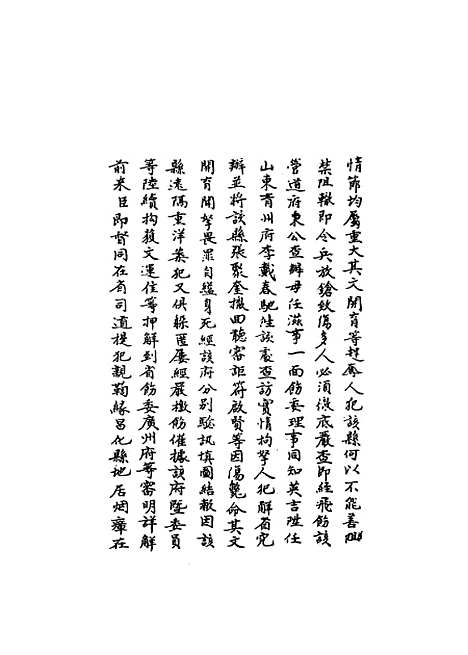 情節均屬重大其文開育等起釁人犯該縣何以不能善為
禁阻輒即令兵放鎗致傷多人必須徹底嚴查即經飛飭該
營道府秉公查辦毋任滋事一面飭委理事同知英吉陞任
山東青州府李戴春馳陸該處查訪實情拘拏人犯解省究
辦並將該縣張聚奎撤回聽審詎符啟賢等因傷斃命其文
開育聞拏畏罪自縊身死經該府分別驗訊填圖結繳因該
縣遠隔重洋案犯又俱躲匿屢經嚴檄飭催據該府暨委員
等陸續拘獲文運住等押解到省飭委廣州府等審明詳解
前來臣即督同在省司道提犯親鞫緣昌化縣地居烟瘴在